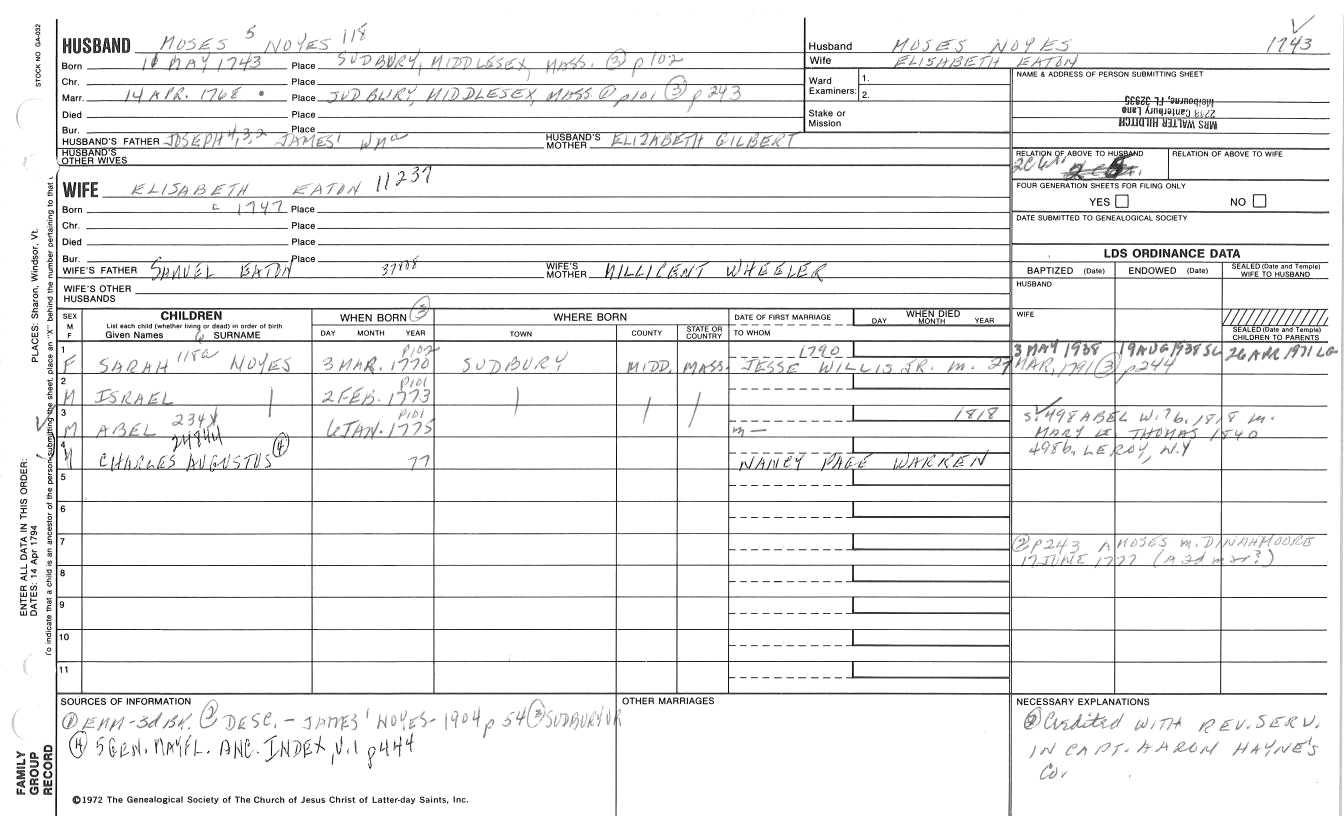 STOCK NO GA-032
HUSBAND MOSES 5 NOYES 118
Born MAY 1743 Place SUDBURY, MIDDLESEX, MASS. ③ p102
Chr. Place
Marr. 14 APR. 1768 Place SUDBURY, MIDDLESEX, MASS p101 ③ p243
Died Place
Bur. Place
HUSBAND'S FATHER JOSEPH 4,3,2 JAMES' HUSBAND'S MOTHER ELIZABETH GILBERT
HUSBAND'S OTHER WIVES
Husband MOSES NOYES 1743
Wife ELISABETH EATON
Ward Examiners: 1.
2.
Stake or Mission
NAME & ADDRESS OF PERSON SUBMITTING SHEET
MRS WALTER HILDITCH
Canterbury Lane
Melbourne, FL 32935
RELATION OF ABOVE TO HUSBAND
RELATION OF ABOVE TO WIFE
FOUR GENERATION SHEETS FOR FILING ONLY
YES NO
DATE SUBMITTED TO GENEALOGICAL SOCIETY
WIFE ELISABETH EATON 11237
Born c 1747 Place
Chr. Place
Died Place
Bur. Place
WIFE'S FATHER SAMUEL EATON WIFE'S MOTHER MILLICENT WHEELER
WIFE'S OTHER HUSBANDS
LDS ORDINANCE DATA
BAPTIZED (Date) ENDOWED (Date) SEALED (Date and Temple) WIFE TO HUSBAND
HUSBAND
WIFE
SEALED (Date and Temple) CHILDREN TO PARENTS
SEX M F
CHILDREN
List each child (whether living or dead) in order of birth
Given Names SURNAME
WHEN BORN ③
DAY MONTH YEAR
WHERE BORN
TOWN COUNTY STATE OR COUNTRY
DATE OF FIRST MARRIAGE
TO WHOM
WHEN DIED
DAY MONTH YEAR
1 118a p102 1790 3 MAY 1938 19 AUG 1938 SL 26 APR 1971 LG
F SARAH NOYES 3 MAR. 1770 SUDBURY MIDD. MASS. JESSE WILLIS JR. m. 27 MAR, 1791 ③ p244
2 p101
M ISRAEL 2 FEB. 1773
3 p101 1818
M ABEL 6 JAN. 1775 m—
S. 498 ABEL W. 76, 1818 m.
MARY THOMAS 1840
LEROY, N.Y
4 24844
M CHARLES AUGUSTUS ④ 77 NANCY PAGE WARREN
5
6
7
② p243 A MOSES m. DINAH MOORE
17 JUNE 1777
8
9
10
11
SOURCES OF INFORMATION
DESC. - JAMES' NOYES - 1904 p 54 ③ SUDBURY VR
④ 5 GEN. MAYFL. ANC. INDEX, V.1 p444
OTHER MARRIAGES
NECESSARY EXPLANATIONS
Credited WITH REV. SERV.
IN CAPT. AARON HAYNE'S
Co.
©1972 The Genealogical Society of The Church of Jesus Christ of Latter-day Saints, Inc.
FAMILY GROUP RECORD
ENTER ALL DATA IN THIS ORDER:
DATES: 14 Apr 1794
PLACES: Sharon, Windsor, Vt.
To indicate that a child is an ancestor of the person submitting the sheet, place an "X" behind the number pertaining to that